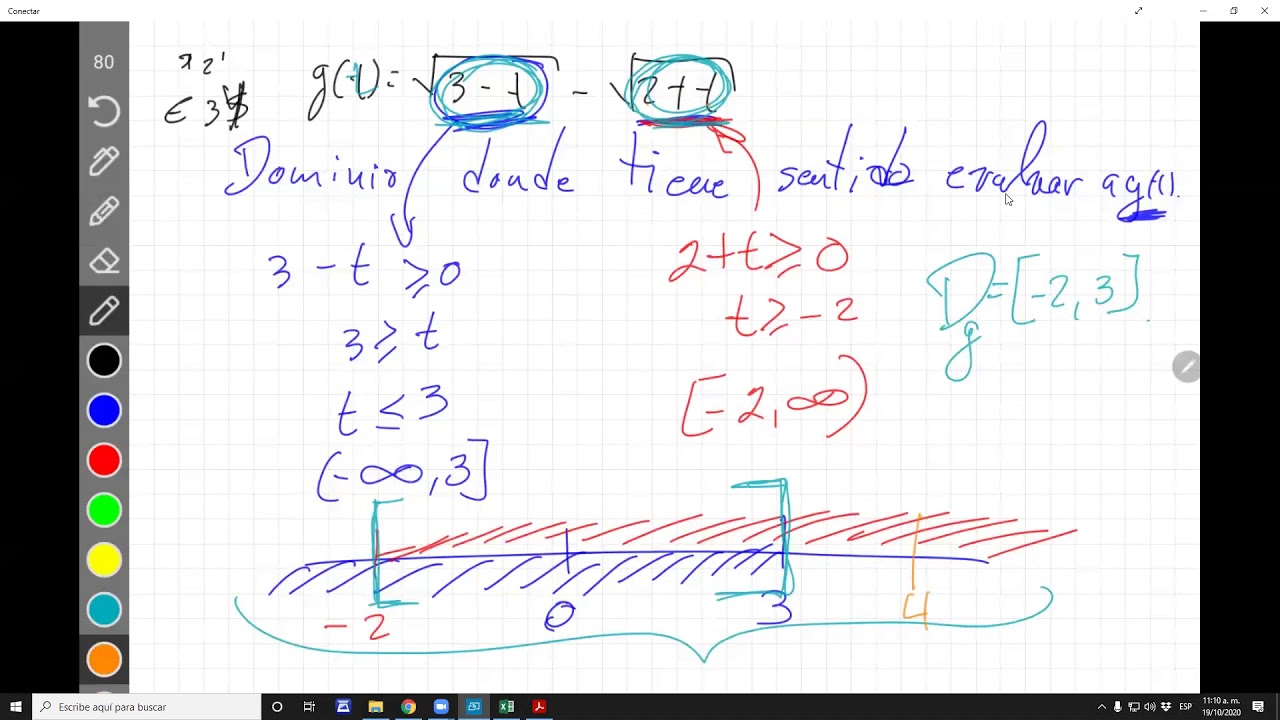 Conectar
80
g(t) = √(3 - t) - √(2 + t)
Dominio donde tiene sentido evaluar a g(t).
3 - t ≥ 0
2 + t ≥ 0
3 ≥ t
t ≥ -2
D_g = [-2, 3].
t ≤ 3
[-2, ∞)
(-∞, 3]
-2 0 3 4
Escribe aquí para buscar
ESP
11:10 a. m.
19/10/2020